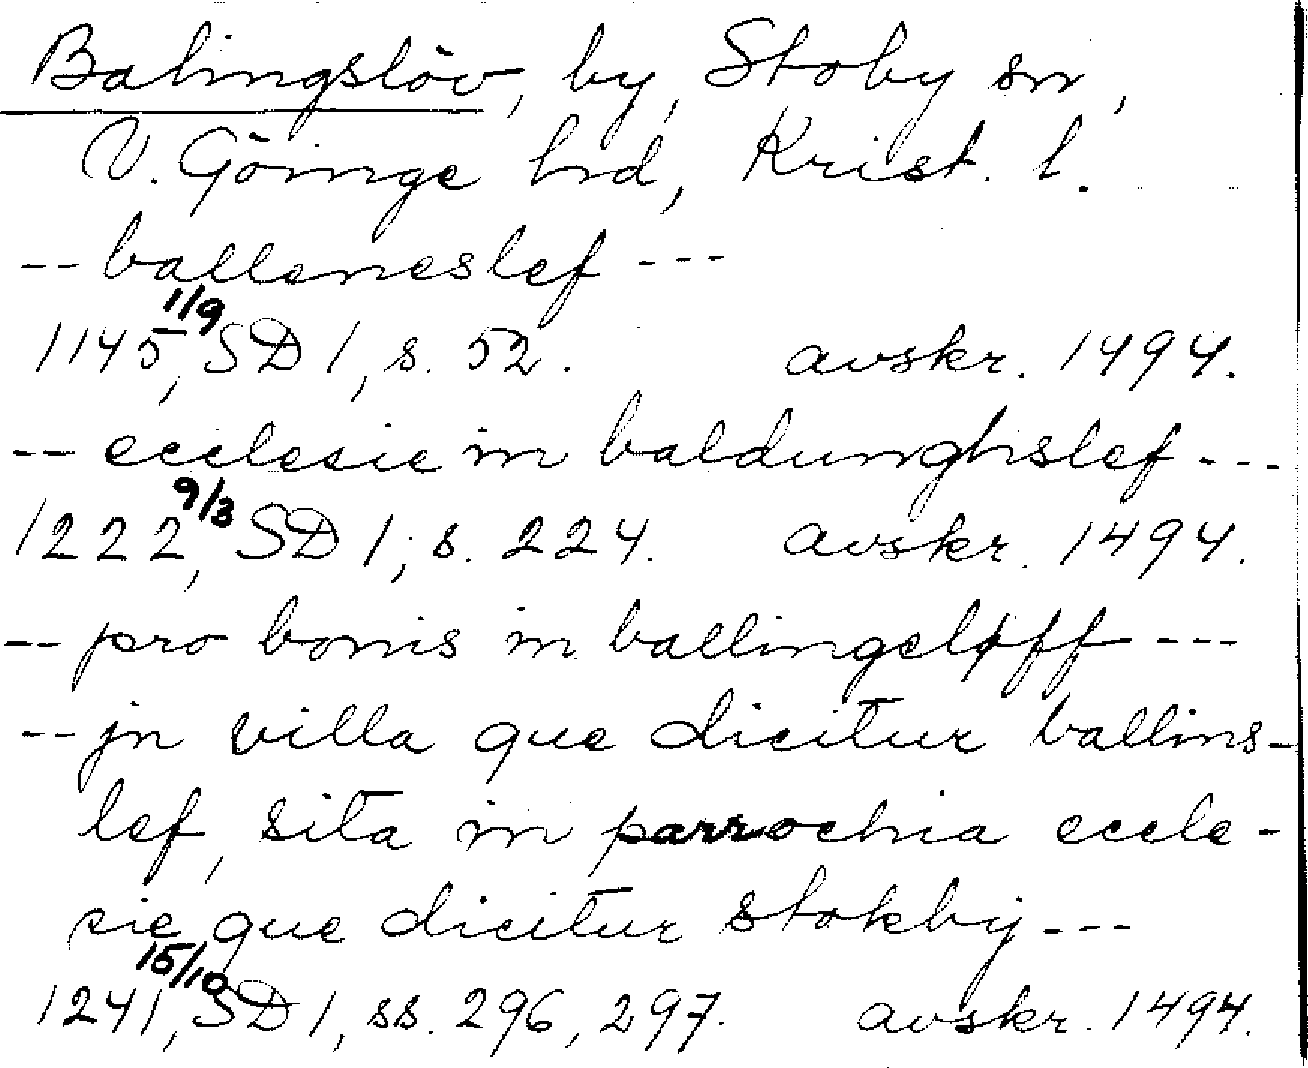 Ballingslöv, by, Stoby sn,
V. Göinge hd, Krist. l.
-- balleneslef ---
1145 1/9, SD 1, s. 52. avskr. 1494.
-- ecclesie in baldunghslef ---
1222 9/3, SD 1, s. 224. avskr. 1494.
-- pro bonis in ballingeløff ---
-- jn villa que dicitur ballins-
lef, sita in parrochia eccle-
sie que dicitur stokbÿ ---
1241 15/10, SD 1, ss. 296, 297. avskr. 1494.